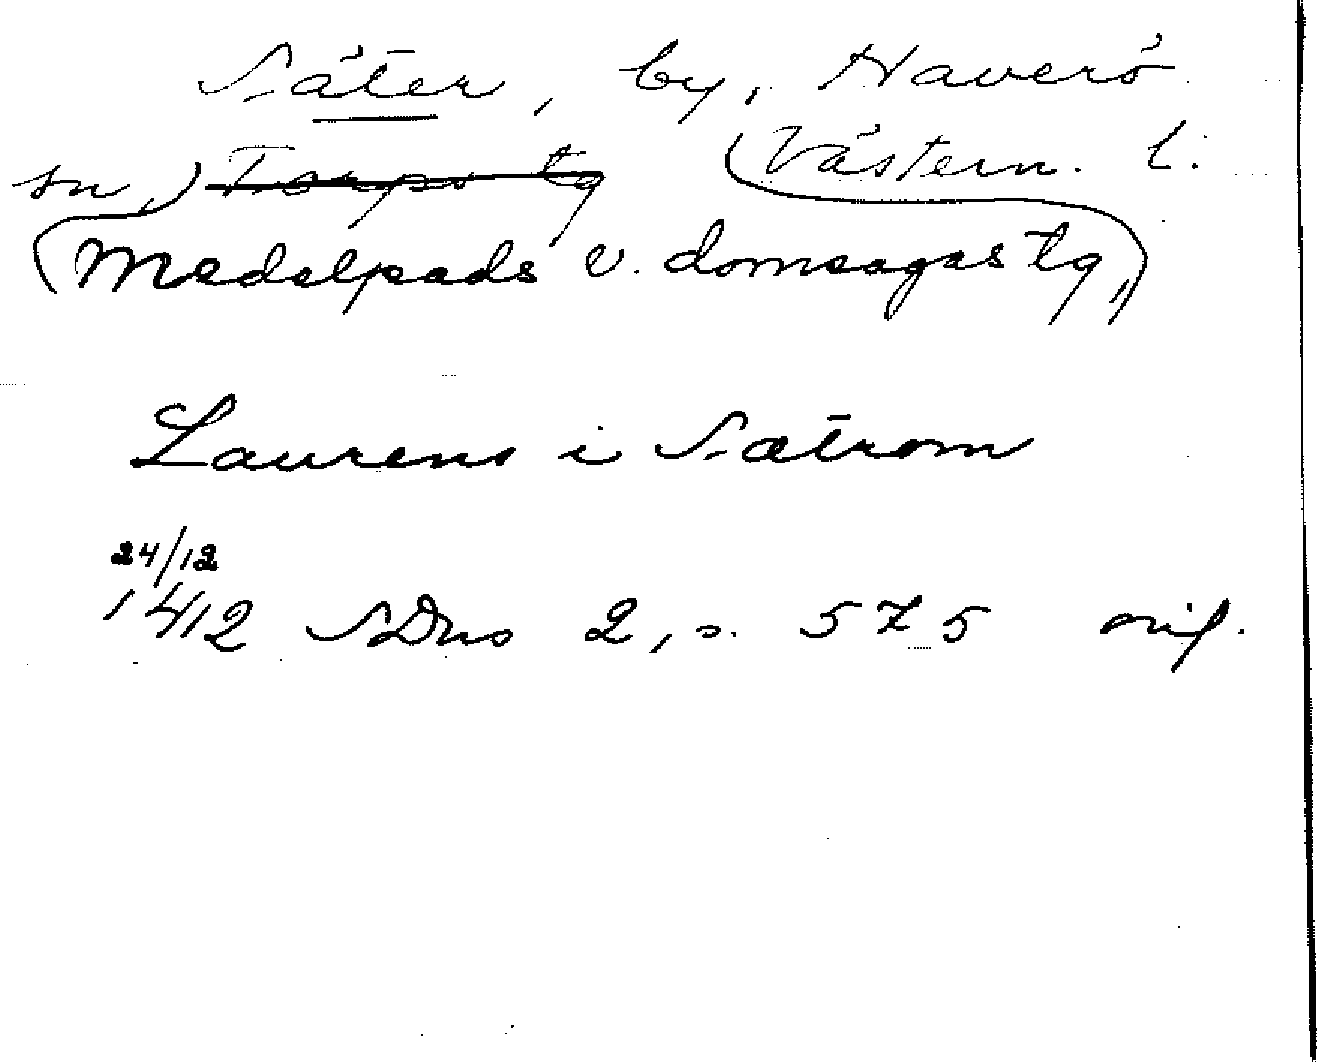 Säter, by, Haverö
sn, Torps tg Västern. l.
Medelpads v. domsagas tg,
Laurens i Sætrom
24/12
1412 SDns 2, s. 575 orig.